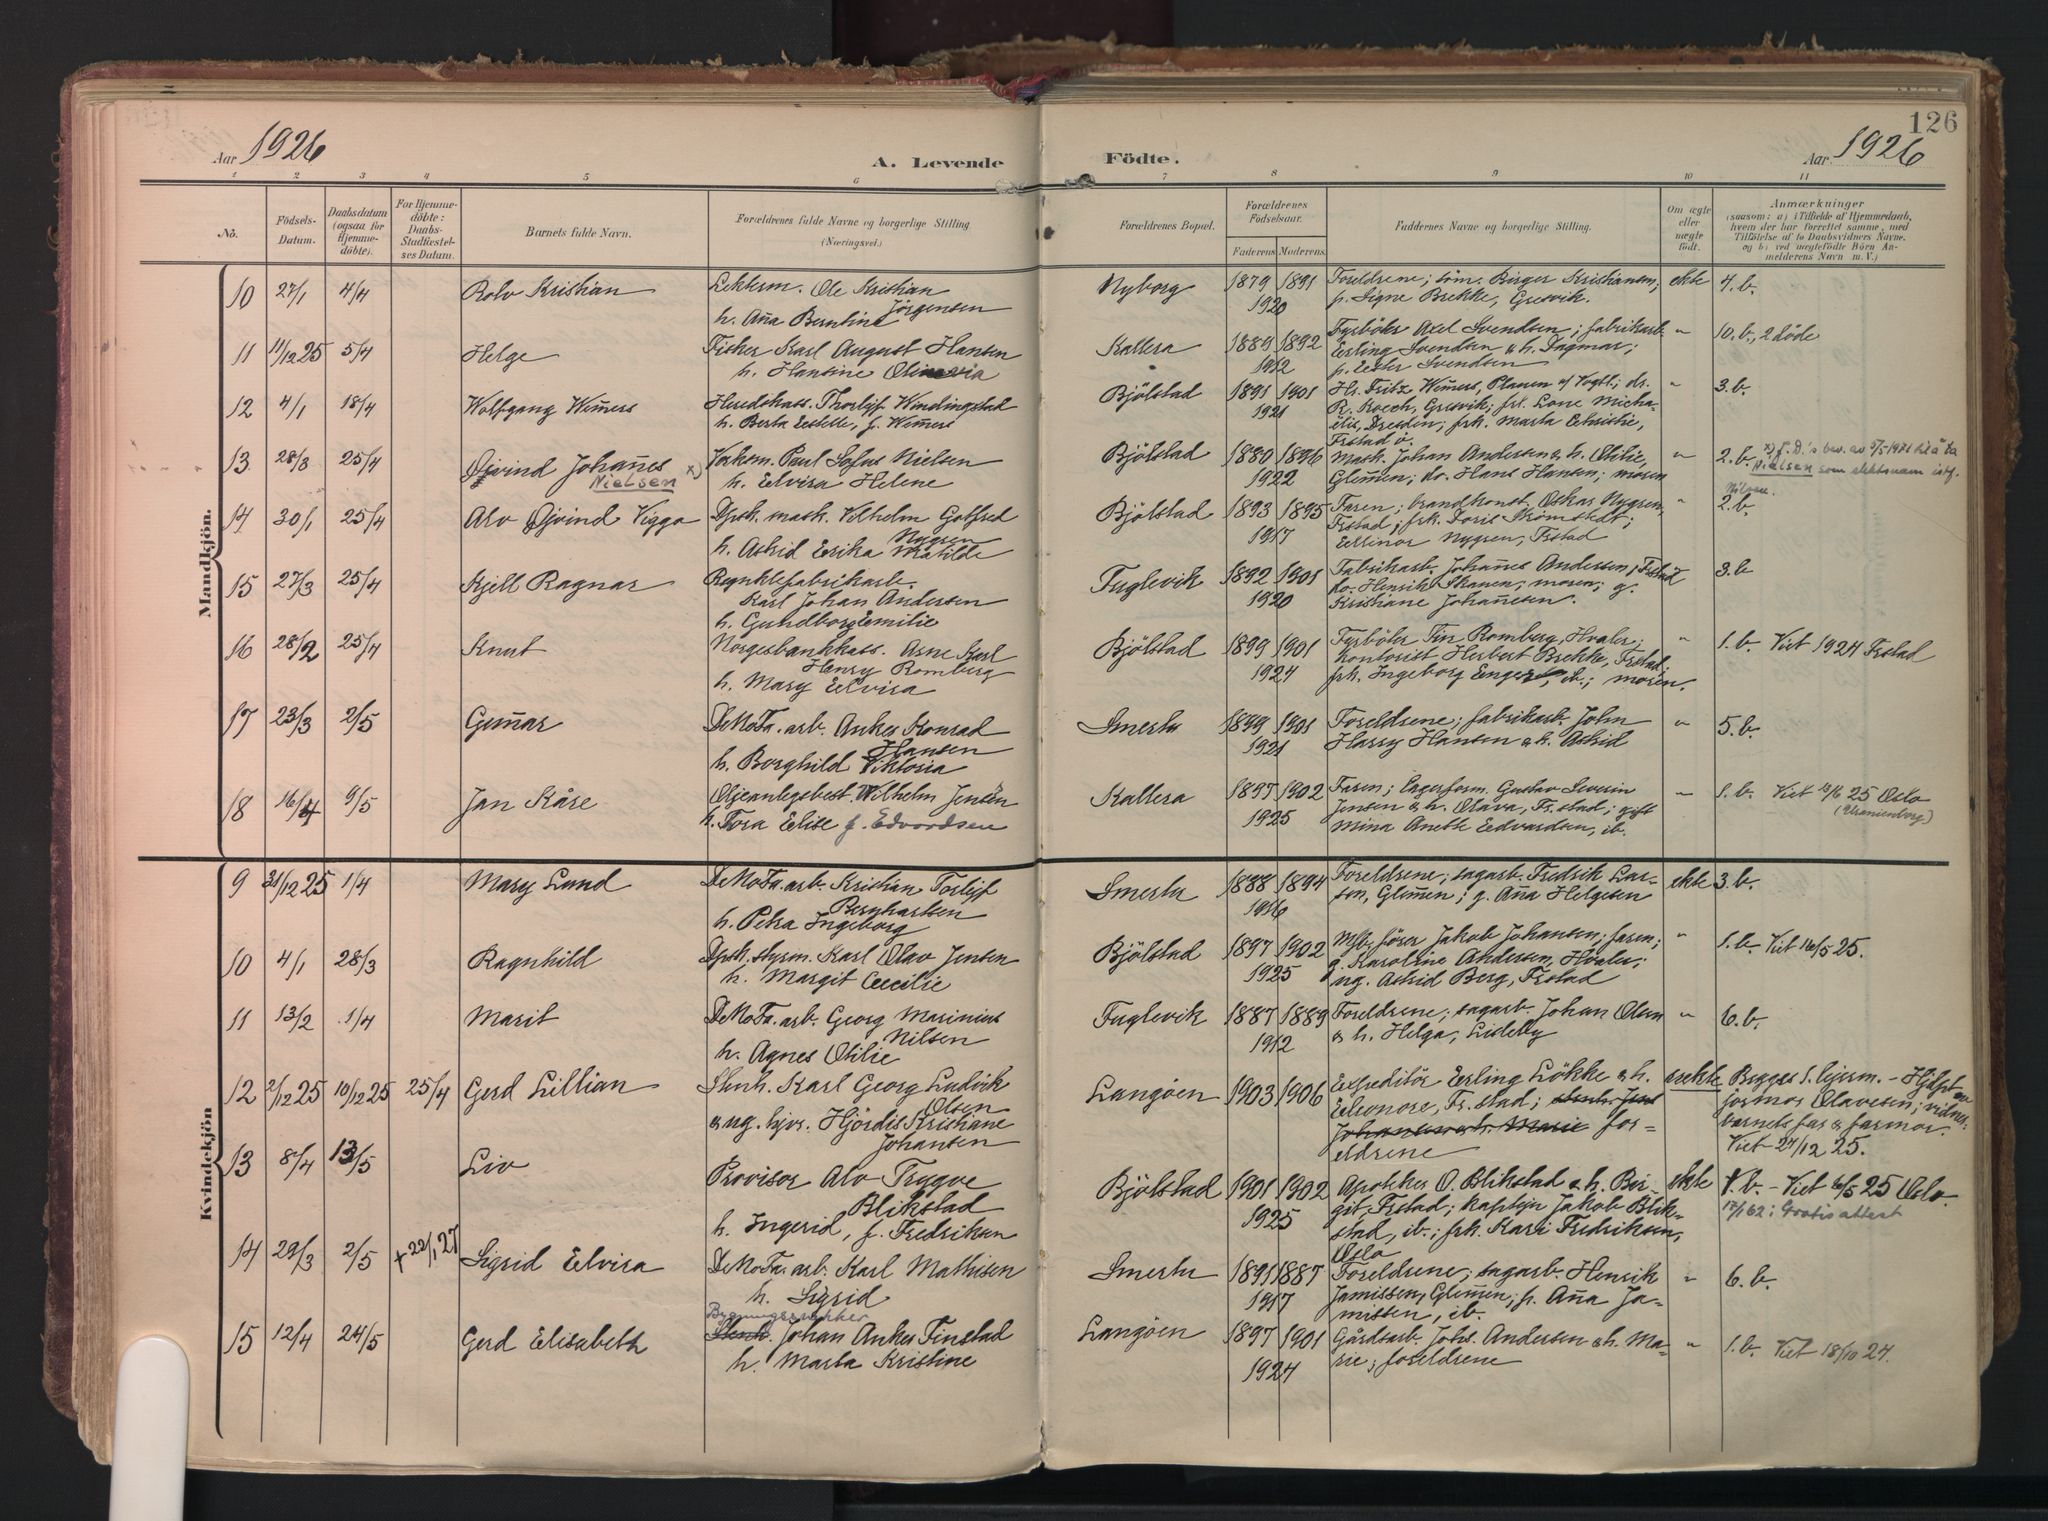 126
Aar 1926
A. Levende Födte.
Aar 1926
1 2 3 4 5 6 7 8 9 10 11
No.
Födsels-Datum.
Daabsdatum (ogsaa for Hjemmedöbte).
For Hjemmedöbte: Daabs-Stadfæstelses Datum.
Barnets fulde Navn.
Forældrenes fulde Navne og borgerlige Stilling (Næringsvei.)
Forældrenes Bopæl.
Forældrenes Födselsaar.
Faderens Moderens
Faddernes Navne og borgerlige Stilling.
Om ægte eller uægte födt.
Anmærkninger
(saasom: a) i Tilfælde af Hjemmedaab,
hvem der har forrettet samme, med
Tilföielse af to Daabsvidners Navne.
og b) ved uægtefödte Börn An-
melderens Navn m. V.)
Mandkjön.
10 27/1 4/4 Rolv Kristian
Lekterm. Ole Kristian
Jörgensen
h. Anna Berntine
Nyborg 1879 1891
1920
Foreldrene; söm. Birger Kristiansen;
p. Signe Brekke, Gresvik.
ekte 4.b.
11 11/12 25 5/4 Helge
Fisker Karl August Hansen
h. Hansine
Kallera 1884 1892
1912
Fyrböter Axel Svendsen; fabrikarb.
Erling Svendsen & h. Dagmar;
p. Ester Svendsen
" 10.b., 2 döde
12 4/1 18/4 Wolfgang Wimers
Heredskass. Thorlijf Windingstad
h. Berta Estelle, f. Wimers
Bjölstad 1891 1901
1921
Hr. Fritz Wimers, Planen i/ Vogtl; dr.
R. Koech, Gresvik; frk. Lone Micha-
elis, Dresden; frk. Marta Christie,
Frstad ö.
" 3.b.
13 28/3 25/4 Øjvind Johannes x)
Nielsen
Vaksm. Paul Sofus Nielsen
h. Elvira Helene
Bjölstad 1880 1896
1922
mask. Johan Andersen & h. Otilie,
Glemmen; do. Hans Hansen; moren
" 2.b. x) f. D.'s bev. av 5/5 1971 til å ta
Nielsen som slektsnavn istf.
Nilsen.
14 30/1 25/4 Alv Øjvind Viggo
Dpsk. mask. Vilhelm Gotfred
Nygren
h. Astrid Erika Matilde
Bjölstad 1893 1895
1917
Faren; brandkonst. Oskar Nygren,
Frstad; frk. Doris Strömstedt;
Ellinor Nygren, Frstad
" 2.b.
15 27/3 25/4 Kjell Ragnar
Regnklefabrikarb.
Karl Johan Andersen
h. Gundborg Emilie
Fuglevik 1892 1901
1920
Fabrikarb. Johannes Andersen, Frstad
do. Henrik Skanen; moren; g.
Kristiane Johannesen.
3.b
16 28/2 25/4 Knut
Norgesbankkass. Arne Karl
Henry Romberg
h. Mary Elvira
Bjölstad 1899 1901
1924
Fyrböter Tin Romberg, Hvaler;
kontorist Herbert Brekke, Frstad;
frk. Ingeborg Enger, ib.; moren.
" 1.b. Viet 1924 Frstad
17 23/3 2/5 Gunnar
DeNoFa. arb. Anker Konrad
Hansen
h. Borghild Viktoria
Smertu 1899 1901
1921
Foreldrene; fabrikarb. John
Harry Hansen & h. Astrid
" 5.b.
18 16/4 9/5 Jan Kåre
Oljeanlegsbest. Wilhelm Jensen
h. Tora Elise f. Edvardsen
Kallera 1897 1902
1925
Faren; Lagerform. Gustav Severin
Jensen & h. Olava, Fr.stad; gift
Mina Anette Edvardsen, ib.
" 1.b. Viet 13/6 25 Oslo
(Uranienborg)
Kvindekjön
9 31/12 25 1/4 Mary Lund
DeNoFa. arb. Kristian Torlijf
Bernhartsen
h. Petra Ingeborg
Smertu 1888 1894
1916
Foreldrene; sagarb. Fredrik Lar-
sen, Glemmen; g. Anna Helgesen
ekte 3.b.
10 4/1 28/3 Ragnhild
Dpsk. styrm. Karl Olav Jensen
h. Margit Cecilie
Bjölstad 1897 1902
1925
M/b. förer Jakob Johansen; faren;
g. Karoline Andersen, Hvaler;
ug. Astrid Berg, Frstad
" 1.b. Viet 16/5 25.
11 13/2 1/4 Marit
DeNoFa. arb. Georg Marinius
Nilsen
h. Agnes Otilie
Fuglevik 1887 1889
1912
Foreldrene; sagarb. Johan Olsen
& h. Helga, Lisleby
" 6.b.
12 2/12 25 10/12 25 25/4 Gerd Lillian
Stenh. Karl Georg Ludvik
Olsen
& ug. hjvr. Hjördis Kristiane
Johansen
Langöen 1903 1906
Expeditör Erling Lökke & h.
Eleonore, Fr.stad; stenh. Jens
Johansen & h. Marie for-
eldrene
uekte Begges 1. lejerm. - Hjdpt av
jormor Olavesen; vidner
barnets far & farmor.
Viet 27/12 25.
13 8/4 13/5 Liv
Provisor Alv Trygve
Blikstad
h. Ingerid, f. Fredriksen
Bjölstad 1901 1902
1925
Apoteker O. Blikstad & h. Bir-
git, Frstad; kaptejn Jakob Blik-
stad, ib.; frk. Kari Fredriksen,
Oslo
ekte 1.b. - Viet 16/5 25 Oslo
17/1 62: Gratis attest
14 29/3 2/5 + 22/1 27 Sigrid Elvira
DeNoFa. arb. Karl Mathisen
h. Sigrid
Smertu 1891 1887
1917
Foreldrene; sagarb. Henrik
Jamissen, Glemmen; p. Anna Ja-
missen, ib.
" 6.b.
15 12/4 24/5 Gerd Elisabeth
Bygningssnekker
Stenh. Johan Anker Finstad
h. Marta Kristine
Langöen 1897 1901
1924
Gårdsarb. Johs. Andersen & h. Ma-
rie; foreldrene
" 1.b. Viet 18/10 24.